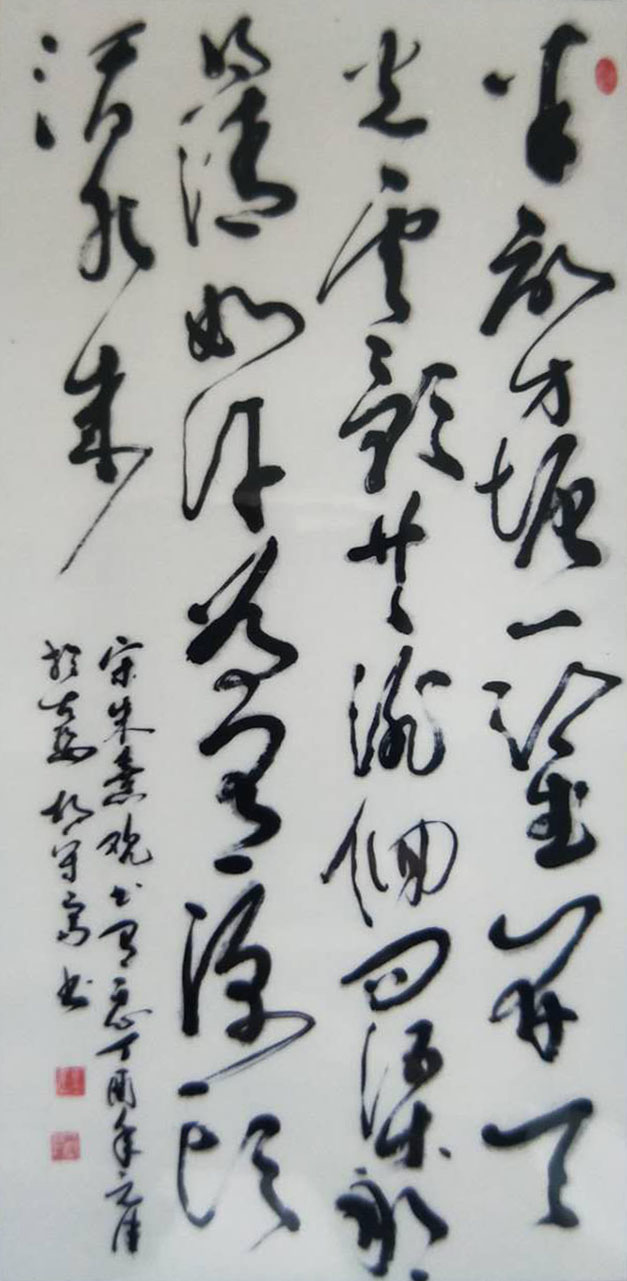 半亩方塘一鉴开天
光雲影共徘徊问渠那
得清如许为有源头
活水来
宋朱熹观书有感丁酉年
书